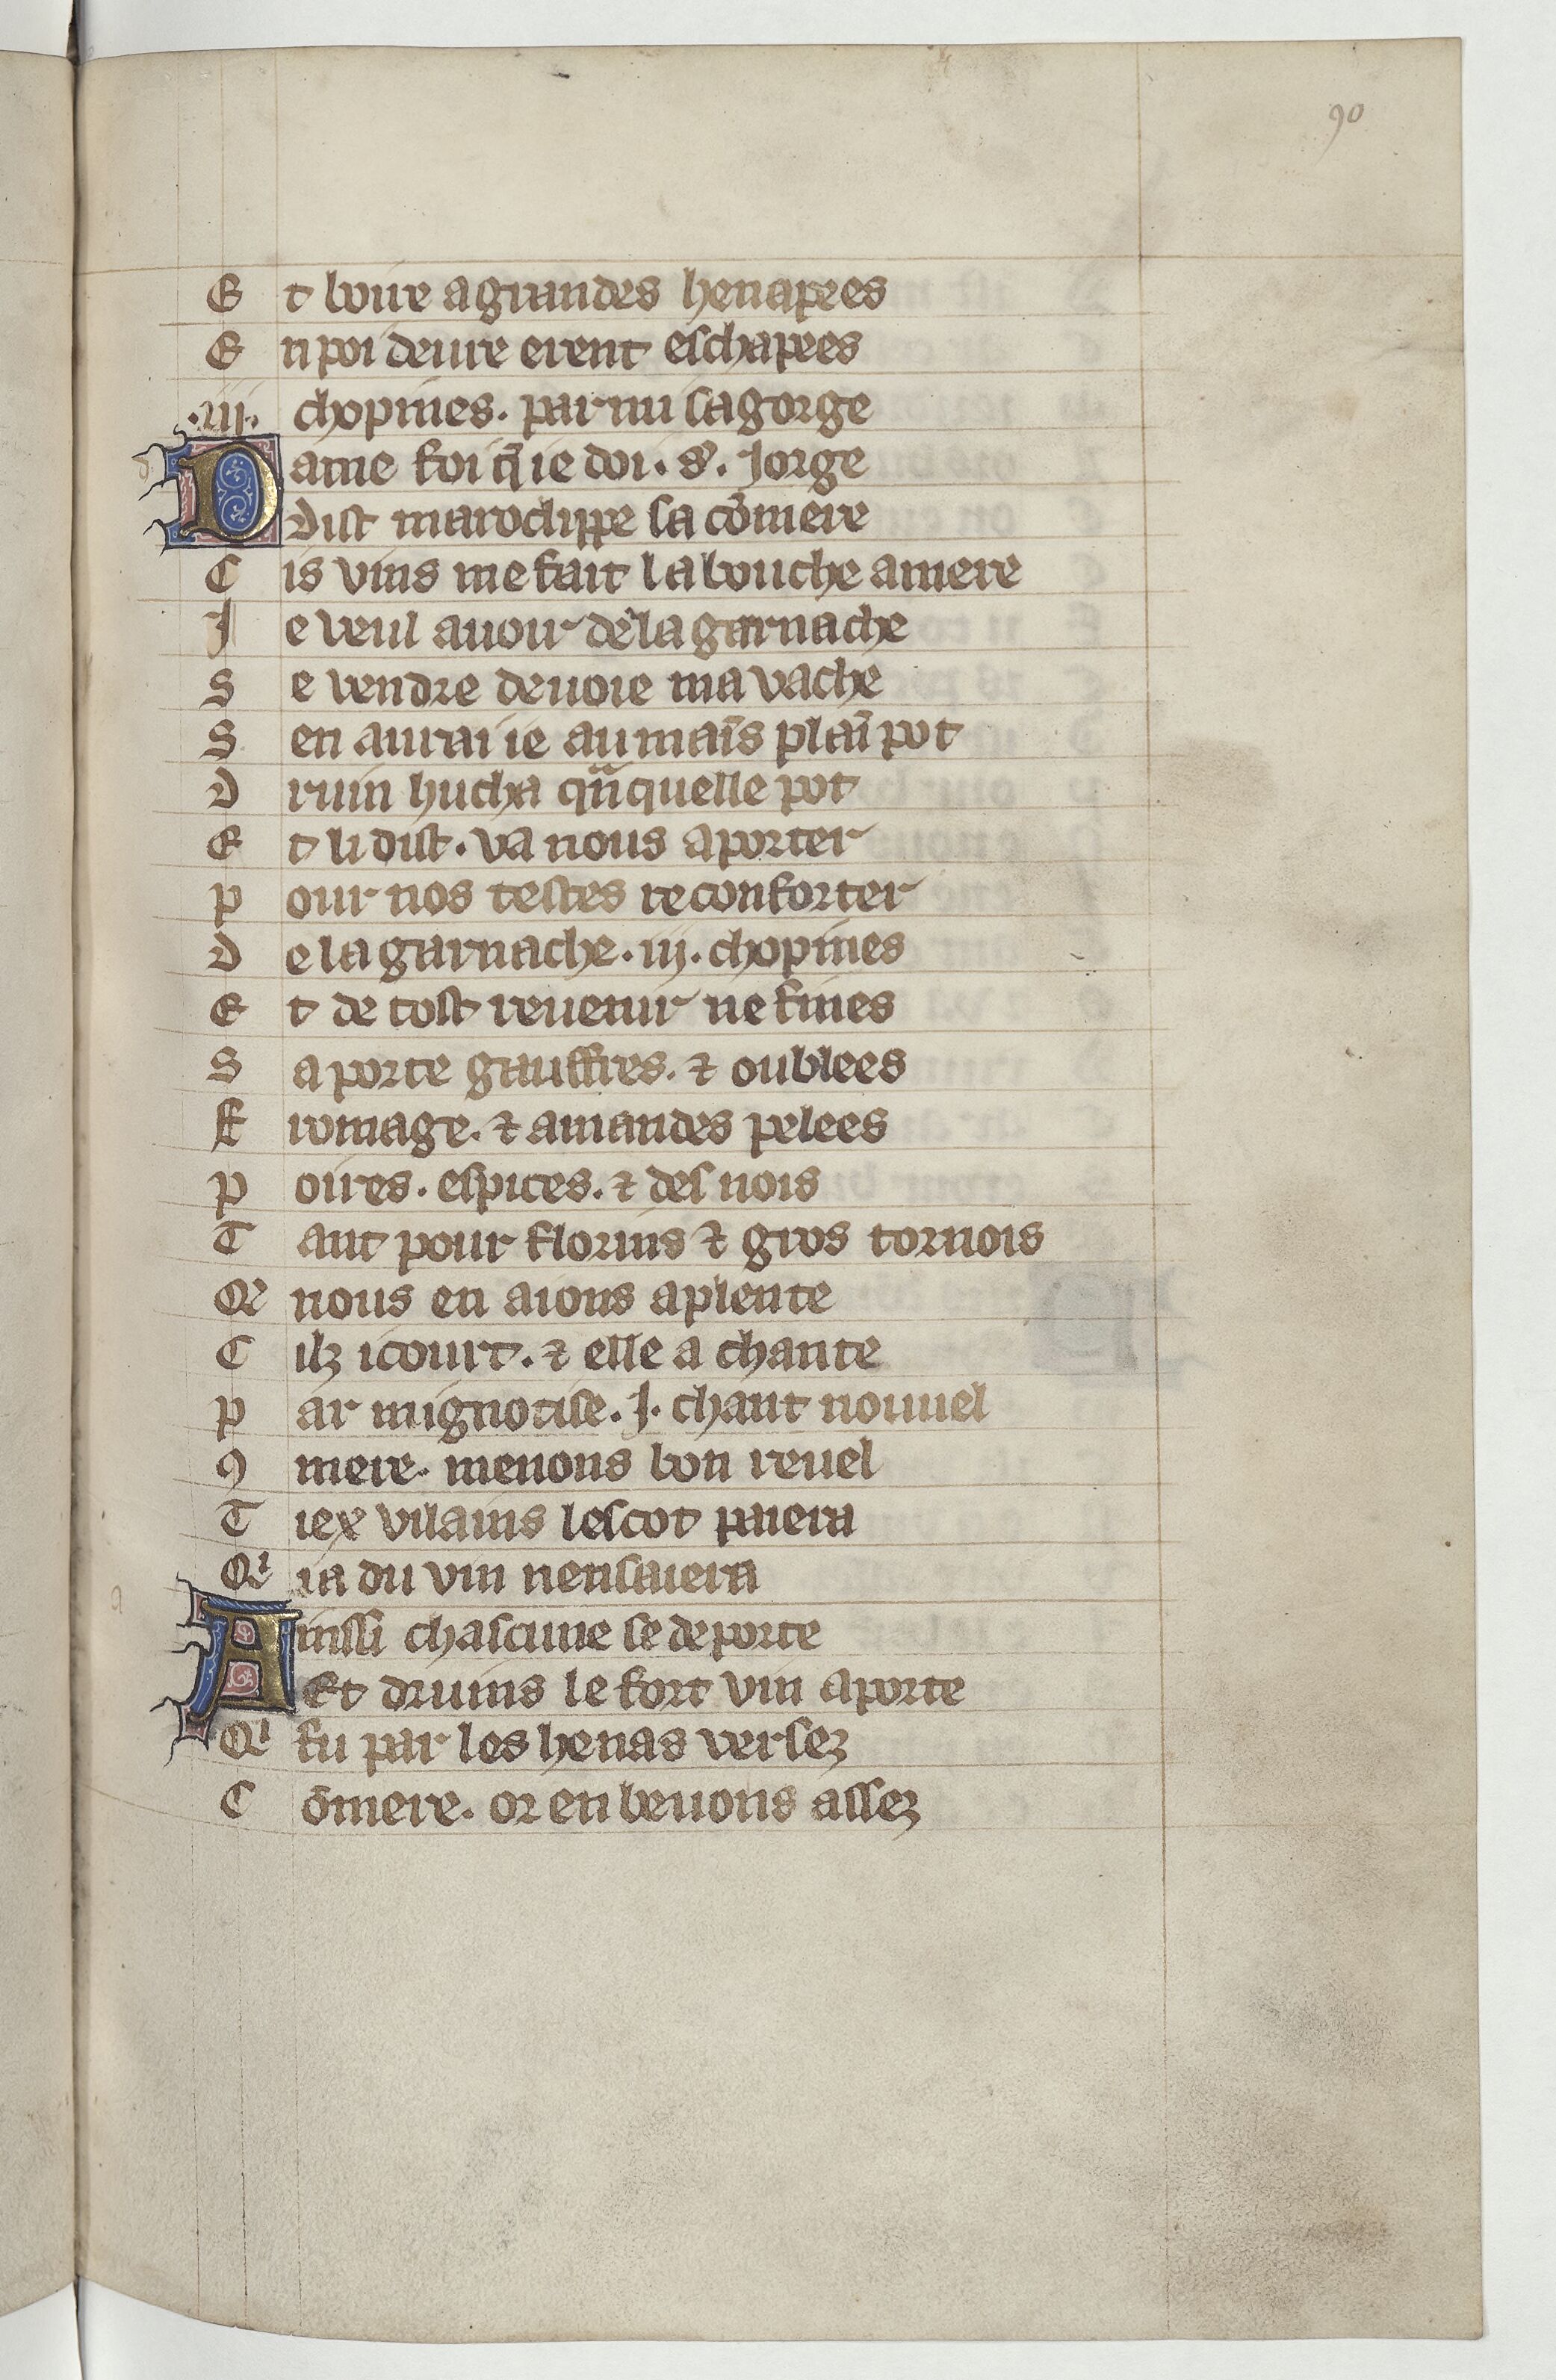 90
Et boire a grandes henapees
En poi deure erent eschapees
.iij. chopines. parmi sa gorge
Dame foi q̃ ie doi. s̾. Jorge
Dist maroclippe sa cõmere
Cis vins me fait la bouche amere
Je veul auoir de la garnache
Se vendre deuoie ma vache
Sen aurai ie au mais̃ plai᷃ pot
Druin hucha qñquelle pot
Et li dist. va nous aporter
Pour nos testes reconforter
De la garnache. iij. chopines
Et de tost reuenir ne fines
Saporte gauffres. ⁊ oublees
Fromage. ⁊ amandes pelees
Poires. espices. ⁊ des nois
Tant pour florins ⁊ gros tornois
Qͤ nous en aions a plente
Cilz i court. ⁊ elle a chante
Par mignotise. J. chant nouuel
ꝯmere. menons bon reuel
Tiex vilains lescot paiera
Qͥ ia du vin nensaiera
Ainssi chascune se deporte
Et druins le fort vin aporte
Qͥ fu par les henas versez
Cõmere. or en beuons assez